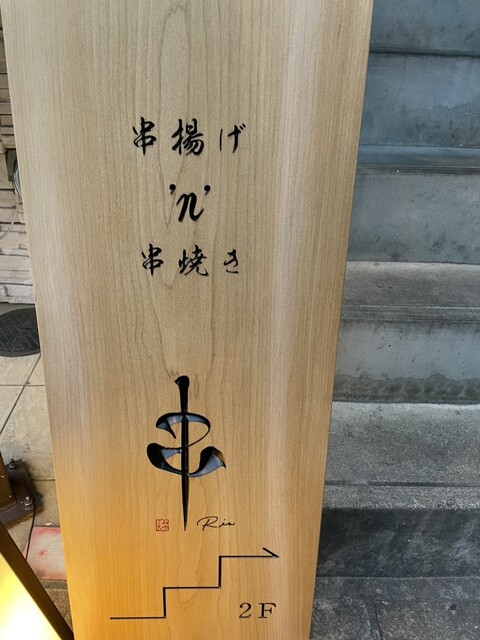 串揚げ
'n'
串焼き
串
Rin
2F